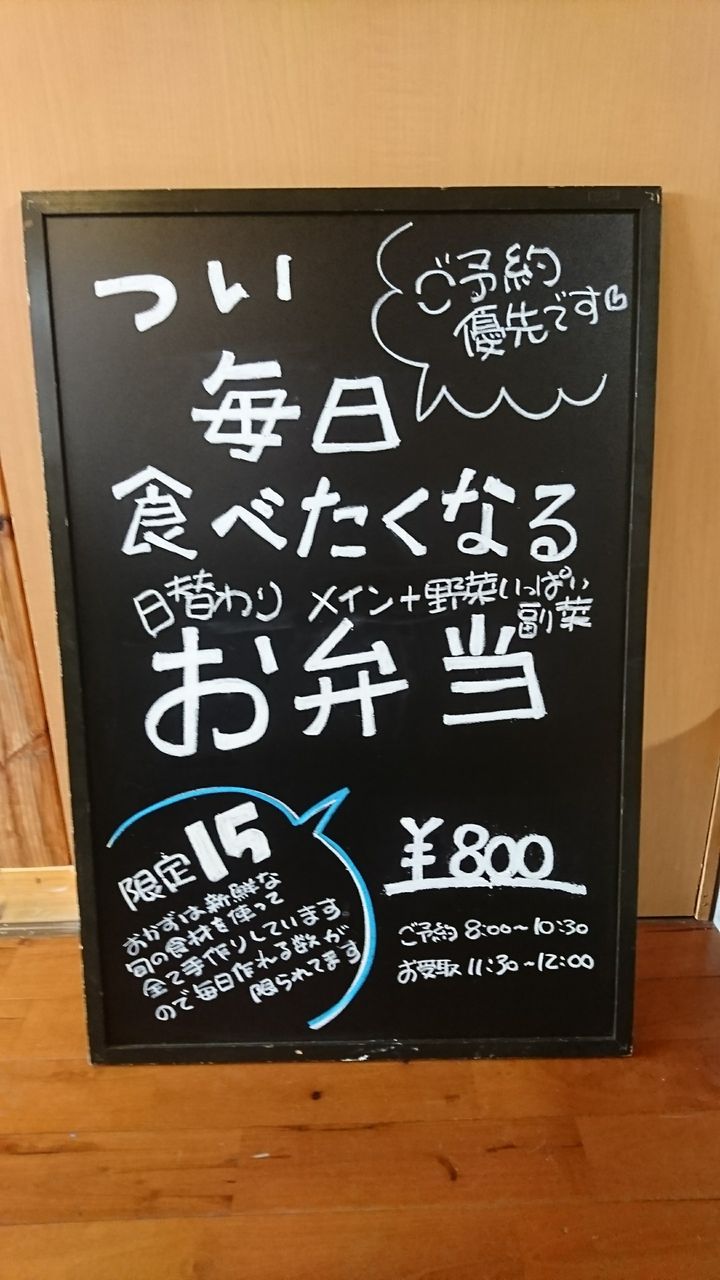 つい
ご予約
優先です
毎日
食べたくなる
日替わり メイン+野菜いっぱい
副菜
お弁当
限定15
おかずは新鮮な
旬の食材を使って
全て手作りしています。
ので毎日作れる数が
限られてます
¥800
ご予約 8:00~10:30
お受取 11:30~12:00